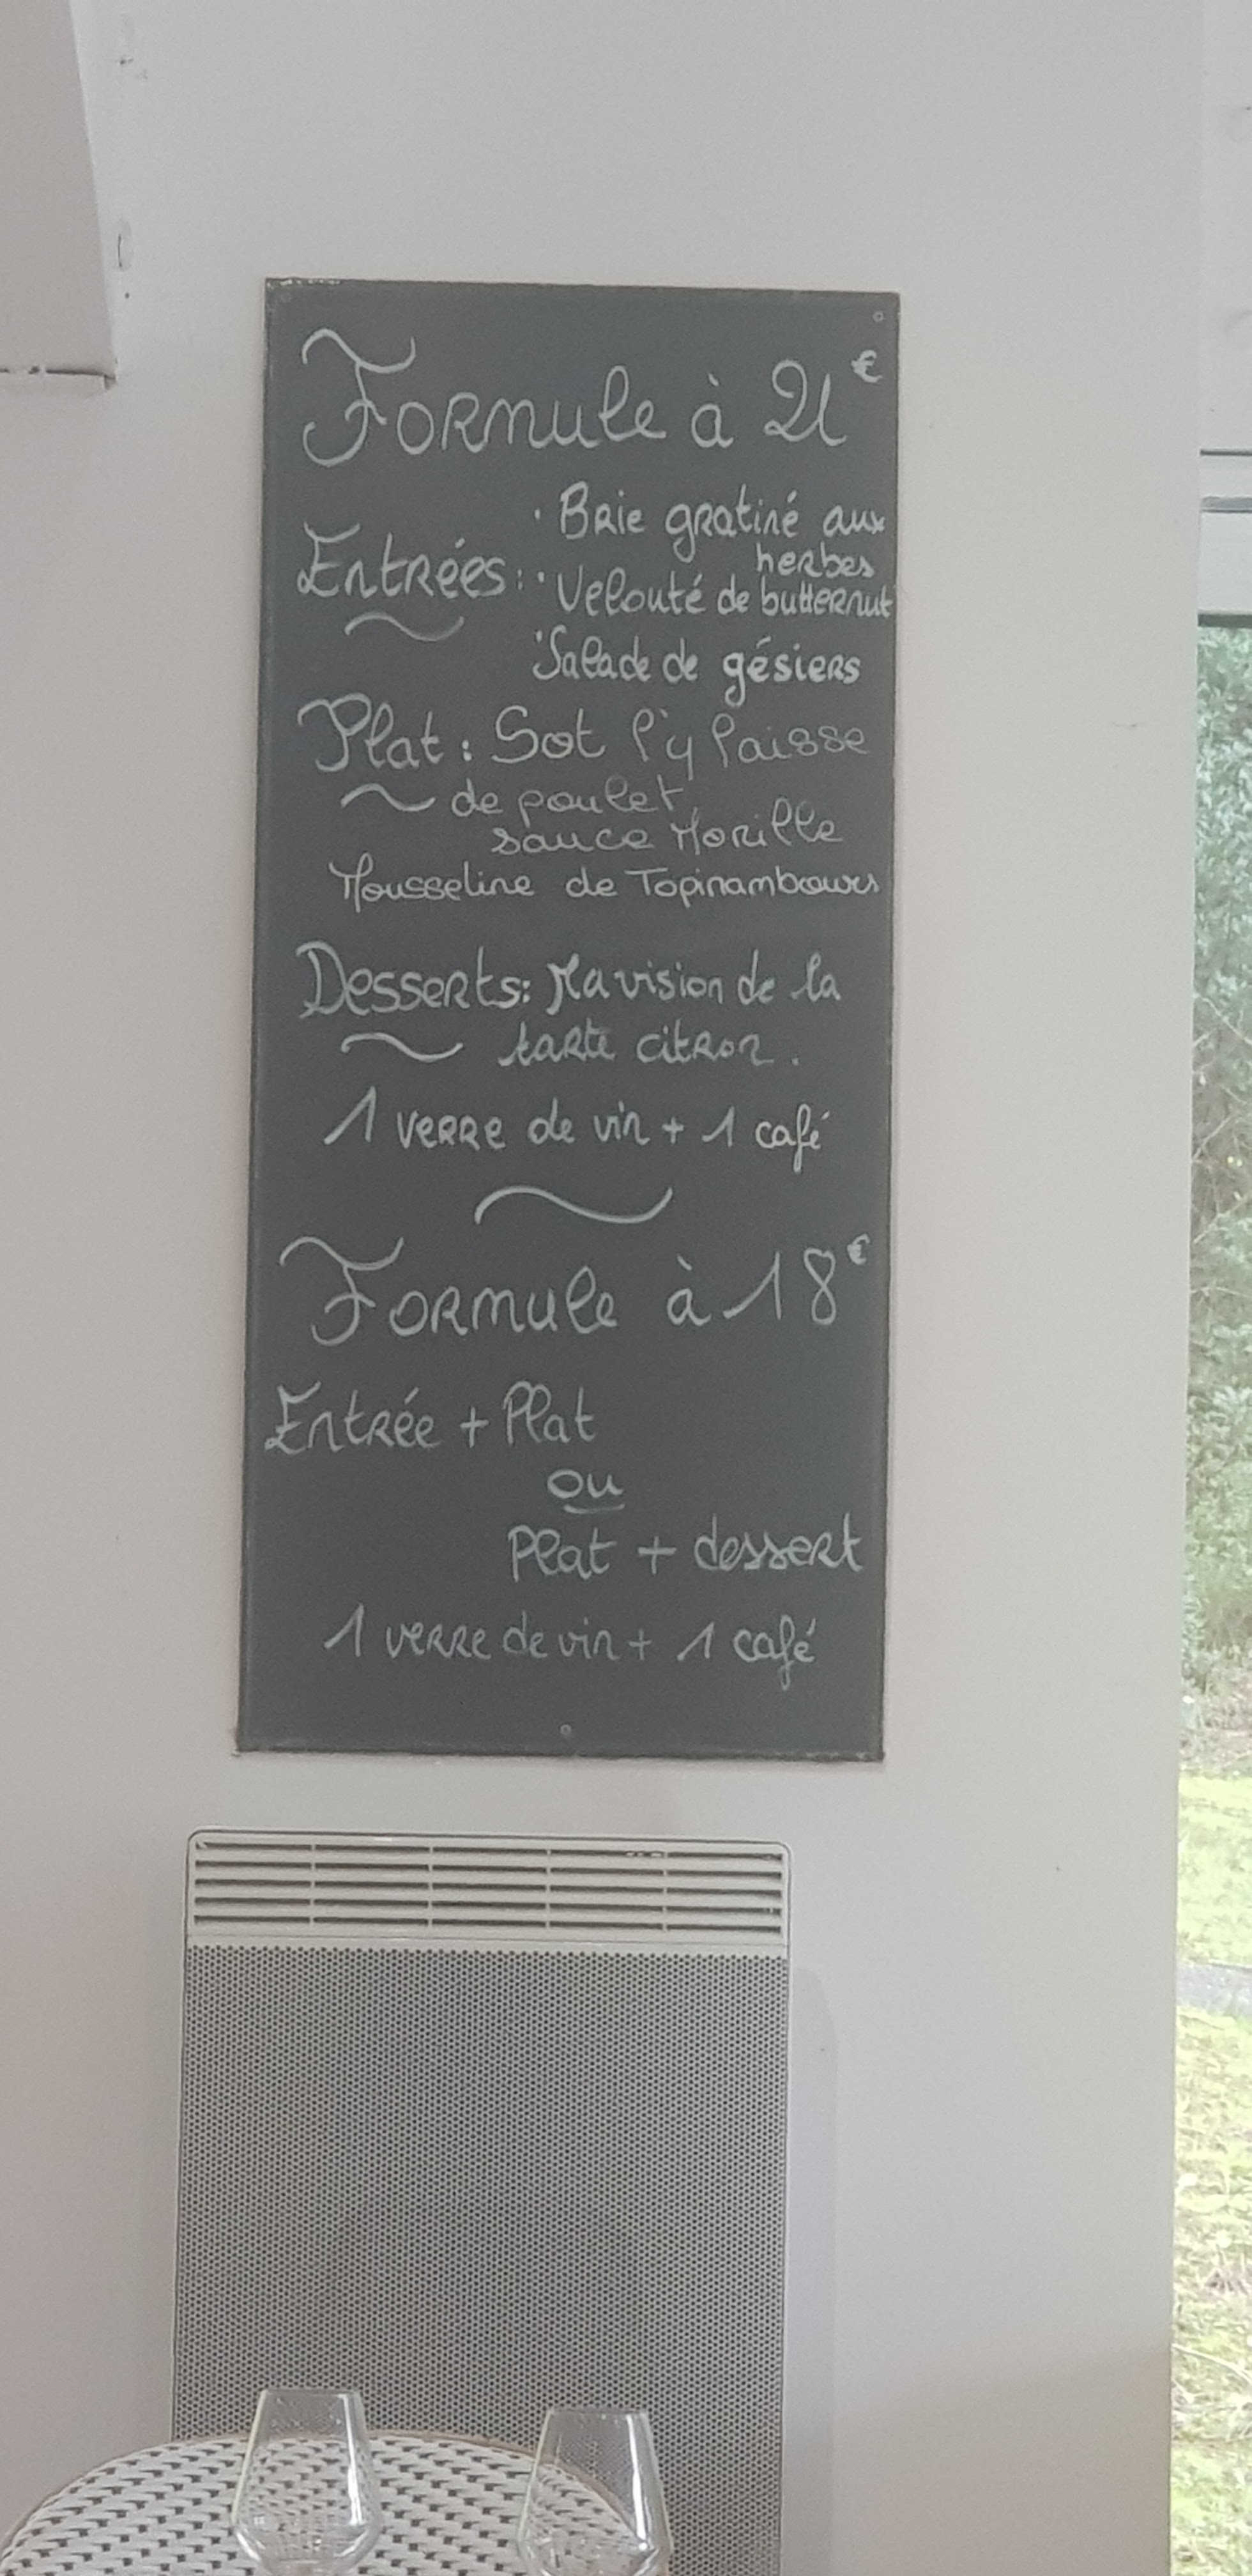 Formule à 21€
· Brie gratiné aux
herbes
Entrées : · Velouté de butternut
· Salade de gésiers
Plat : Sot l'y laisse
de poulet,
sauce Morille
Mousseline de Topinambours
Desserts : Ma vision de la
tarte citron.
1 verre de vin + 1 café
Formule à 18€
Entrée + Plat
ou
Plat + dessert
1 verre de vin + 1 café